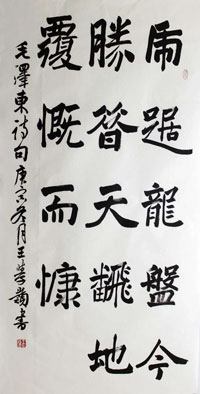 虎踞龍盤今
勝昔天翻地
覆慨而慷
毛澤東詩句庚寅月王書